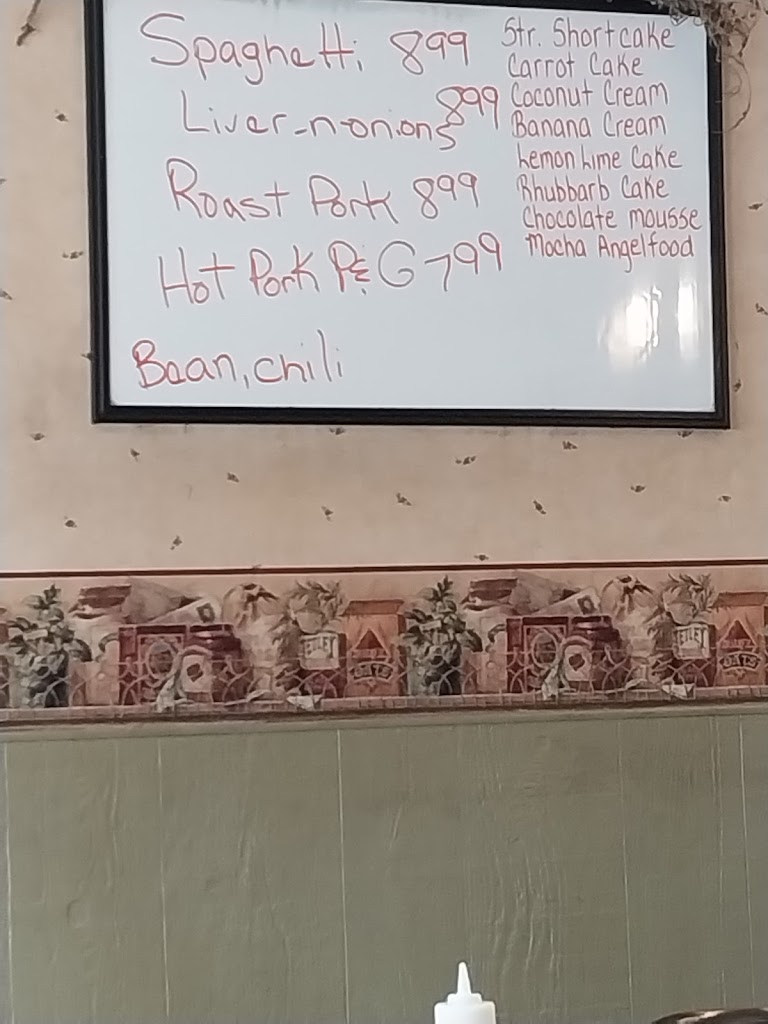 Spaghetti 899
Liver-n-onions 899
Roast Pork 899
Hot Pork P&G 799
Bean, chili
Str. Shortcake
Carrot Cake
Coconut Cream
Banana Cream
Lemon Lime Cake
Rhubbarb Cake
Chocolate mousse
Mocha Angelfood